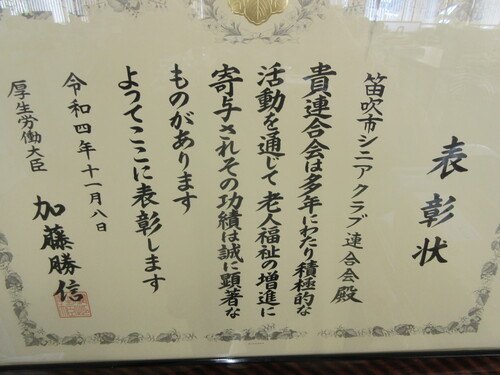 表彰状
笛吹市シニアクラブ連合会殿
貴連合会は多年にわたり積極的な
活動を通じて老人福祉の増進に
寄与されその功績は誠に顕著な
ものがあります
よってここに表彰します
令和四年十一月八日
厚生労働大臣
加藤勝信